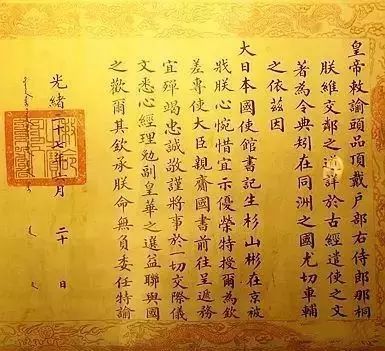 皇帝敕諭頭品頂戴戶部右侍郎那桐
朕維交鄰之道詳於古經遣使之文
著為令典矧在同洲之國尤切車輔
之依茲因
大日本國使館書記生杉山彬在京被
戕朕心惋惜宜示優榮特授爾為欽
差專使大臣親齎國書前往呈遞務
宜殫竭忠誠敬謹將事於一切交際儀
文悉心經理勉副皇華之選益聯與國
之歡爾其欽承朕命無負委任特諭
光緒十七年月二十日